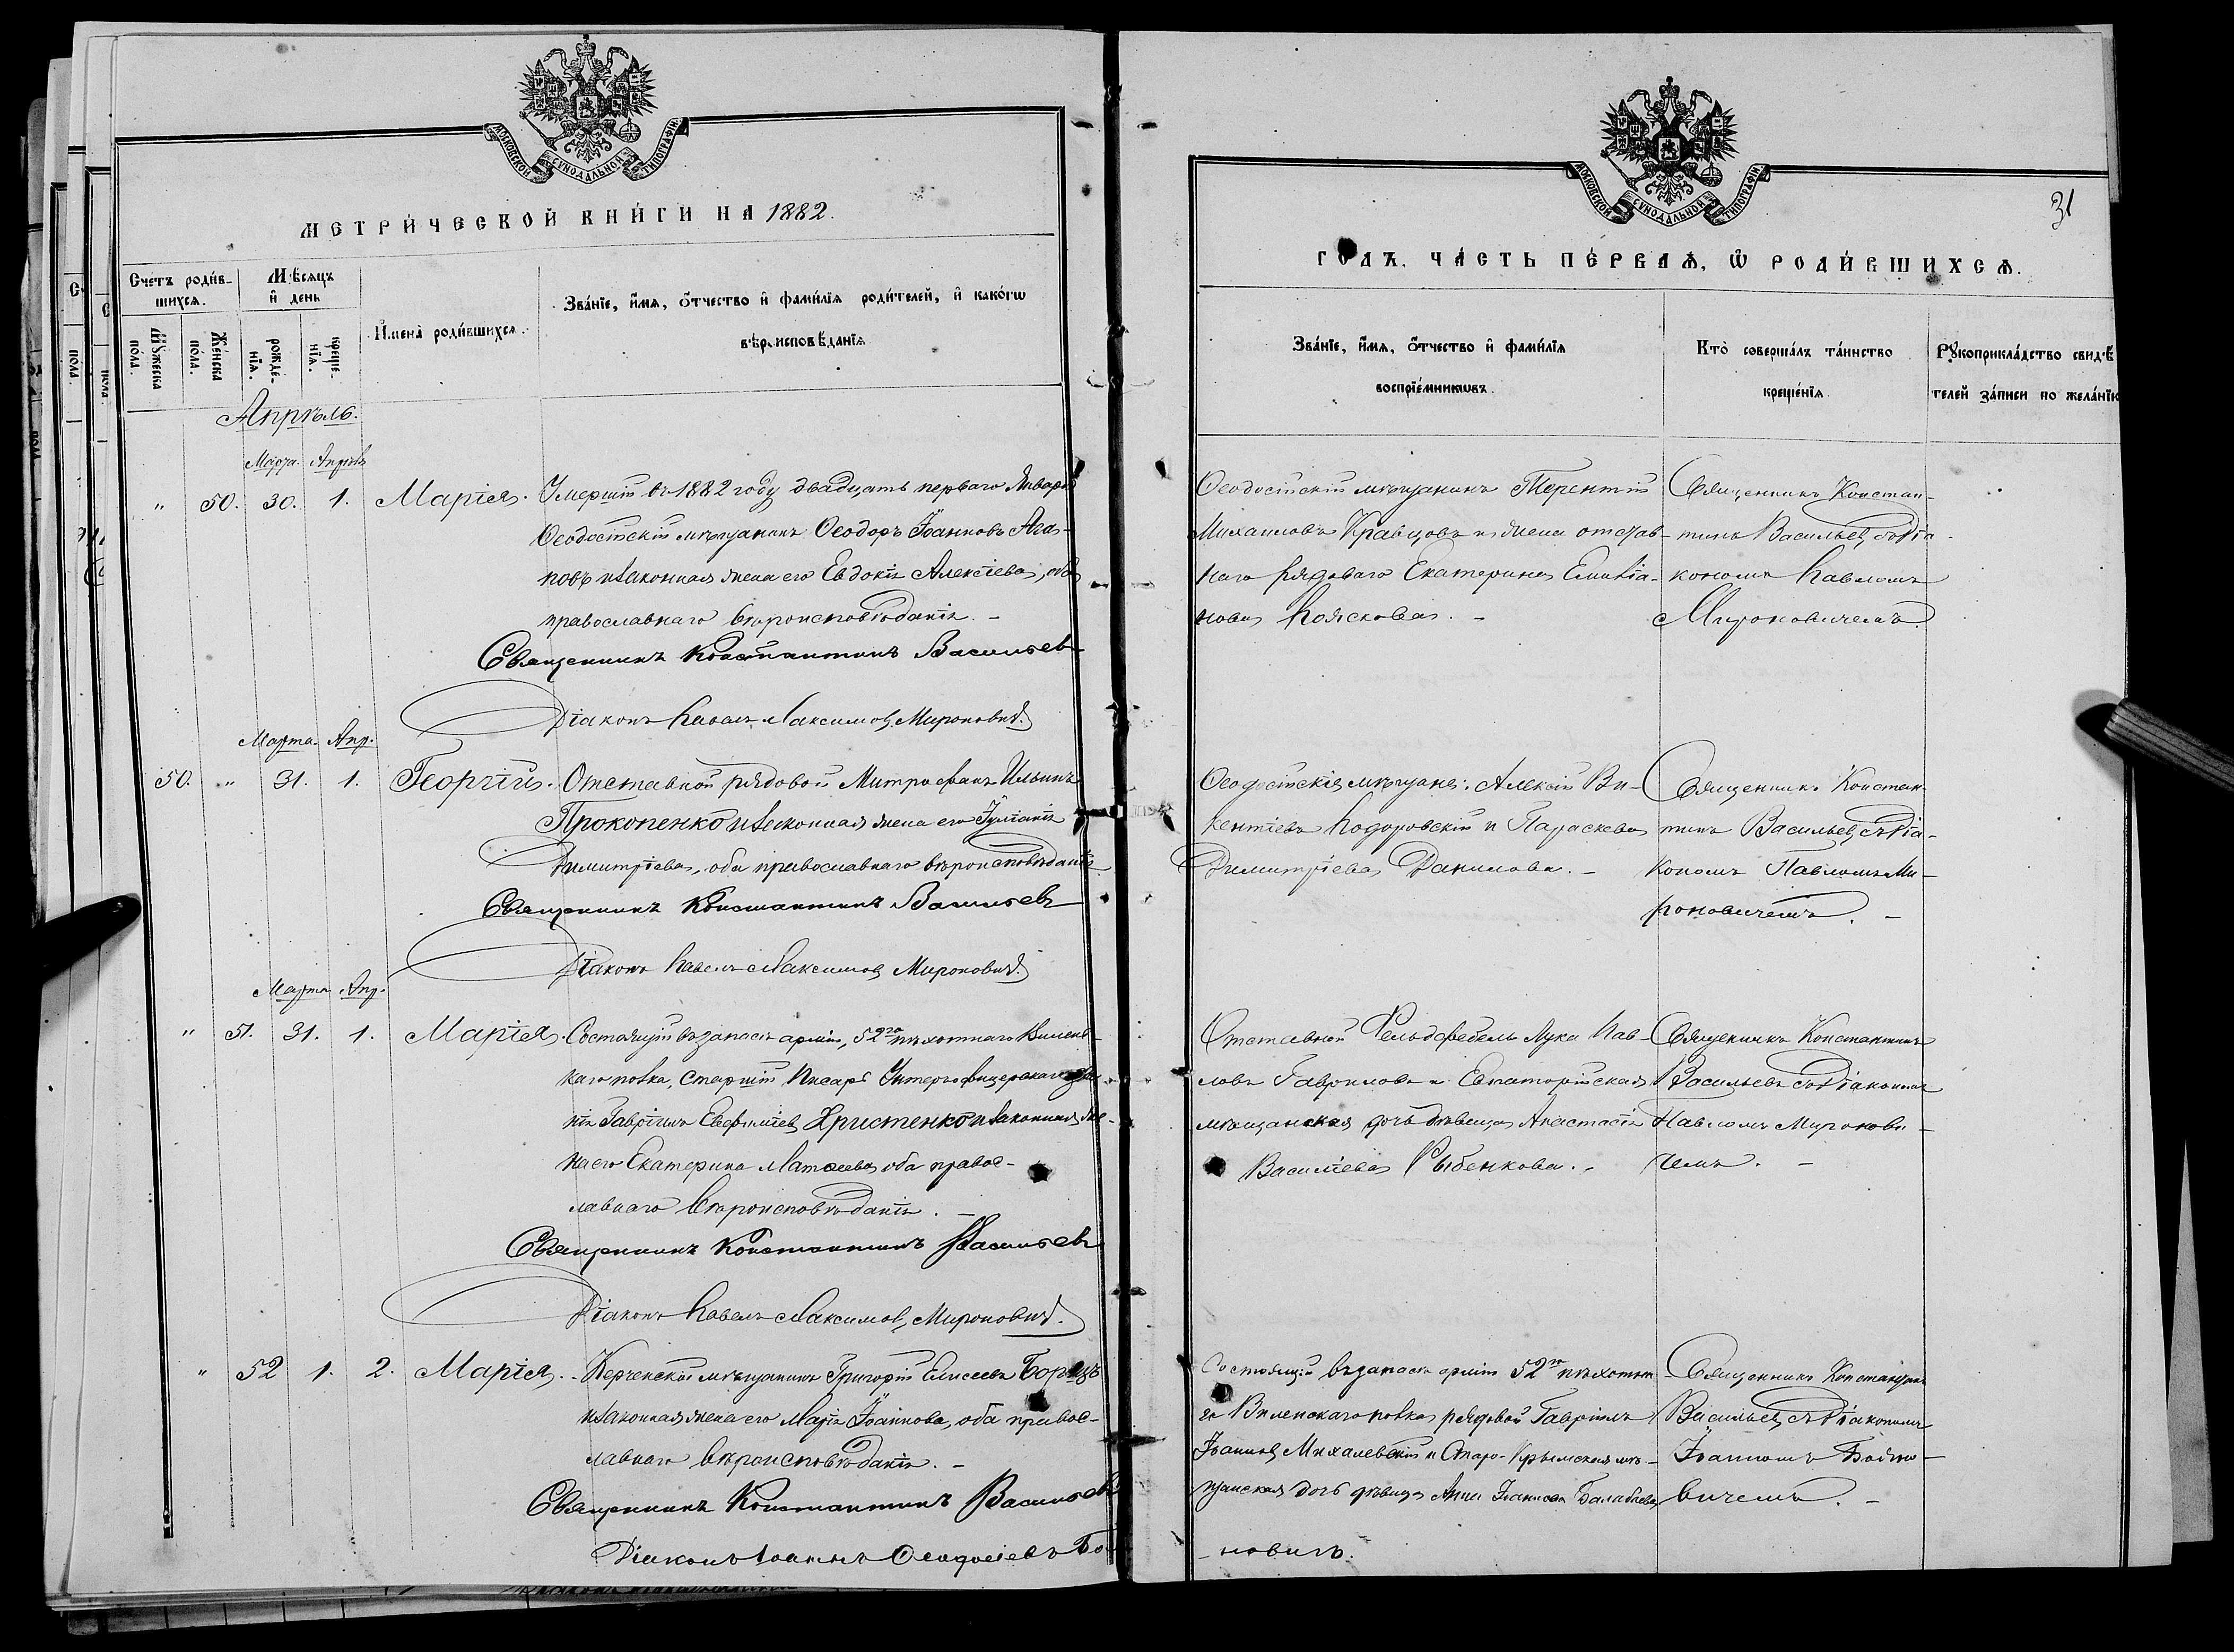 МОСКОВСКОЙ СѴНОДАЛЬНОЙ ТИПОГРАФІИ
МЕТРИ́ЧЕСКОЙ КНИ́ГИ НА 1882.
Сче́тъ роди́в-
шихсѧ.
Мѣ́сѧцъ
и҆ день
Мꙋ́жеска по́ла.
Же́нска по́ла.
рожде-нїѧ.
креще-нїѧ.
И҆мена̀ роди́вшихсѧ.
Зва́нїе, и҆́мѧ, ѻ҆́тчество и҆ фами́лїѧ роди́телей, и҆ како́гѡ
вѣроисповѣ́данїѧ
Апрѣль.
Марта. Апрѣль
" 50. 30. 1. Марія. Умершій въ 1882 году двадцать перваго Января
Ѳеодосійскій мѣщанинъ Ѳеодоръ Іоанновъ Ага-
повъ и законная жена его Евдокія Алексіева, оба
православнаго вѣроисповѣданія. –
Священникъ Константинъ Васильевъ
Діаконъ Павелъ Максимов. Мироновичъ.
Марта. Апр.
50. " 31. 1. Георгій. Отставной рядовой Митрофанъ Ильинъ
Прокопенко и законная жена его Іуліанія
Димитріева, оба православнаго вѣроисповѣданія.
Священникъ Константинъ Васильевъ
Діаконъ Павелъ Максимов Мироновичъ.
Марта Апр.
" 51. 31. 1. Марія. Состоящій въ запасѣ арміи, 52го пѣхотнаго Виленс-
каго полка, Старшій Писарь Унтеръ-офицерскаго зва-
нія Гавріилъ Евфиміев Христенко и законная же-
на его Екатерина Матѳеева, оба правос-
лавнаго вѣроисповѣданія. –
Священникъ Константинъ Васильевъ
Діаконъ Павелъ Максимов, Мироновичъ.
" 52 1. 2. Марія. Керченскій мѣщанинъ Григорій Елисеевъ Борецъ
и законная жена его Марія Іоаннова, оба правос-
лавнаго вѣроисповѣданія. –
Священникъ Константинъ Васильевъ
Діаконъ Іоаннъ Ѳеодосіевъ Бо-
МОСКОВСКОЙ СѴНОДАЛЬНОЙ ТИПОГРАФІИ
31
ГОДЪ. ЧА́СТЬ ПЕ́РВАѦ, Ѽ РОДИ́ВШИХСѦ.
Зва́нїе, и҆́мѧ, ѻ҆́тчество и҆ фами́лїѧ
воспрїе́мникѡвъ.
Кто̀ соверша́лъ та́инство
креще́нїѧ
Рꙋкоприкла́дство свидѣ́-
телей за́писи по жела́нїю
Ѳеодосійскій мѣщанинъ Терентій
Михаиловъ Кравцовъ и жена отстав-
наго рядоваго Екатерина Емилiа-
нова Пояскова. –
Священникъ Констан-
тинъ Васильев, съ Діа-
кономъ Павломъ
Мироновичемъ.
Ѳеодосійскіе мѣщане: Алексій Ви-
кентіевъ Подоровскій и Параскева
Димитріева Данилова. –
Священникъ Констан-
тинъ Васильев, съ Діа-
кономъ Павломъ Ми-
роновичемъ. –
Отставной Фельдфебель Лука Пав-
ловъ Гавриловъ и Евпаторійская
мѣщанская дочь дѣвица Анастасія
Василіева Рыбенкова. –
Священникъ Константинъ
Васильевъ съ Діакономъ
Павломъ Миронови-
чемъ. –
Состоящій въ запасѣ арміи 52го пѣхотна-
го Виленскаго полка, рядовой Гавріилъ
Іоаннов, Михалевскій и Старо-Крымская мѣ-
щанская дочь дѣвица Анна Іоаннова Балабаева
Священникъ Константинъ
Васильев, съ Діакономъ
Іоанномъ
вичемъ. –
-новичъ.